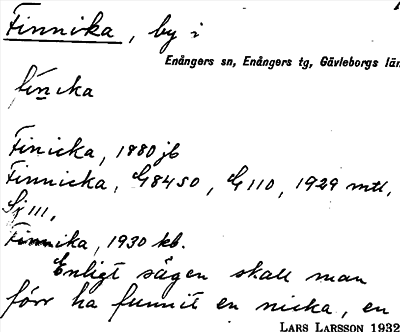 Finnika, by i
Enångers sn, Enångers tg, Gävleborgs län
finika
Finicka, 1880 jb
Finnicka, G8450, G110, 1929 mtl,
Sj 111,
Finnika, 1930 kb.
Enligt sägen skall man
förr ha funnit en nicka, en
LARS LARSSON 1932